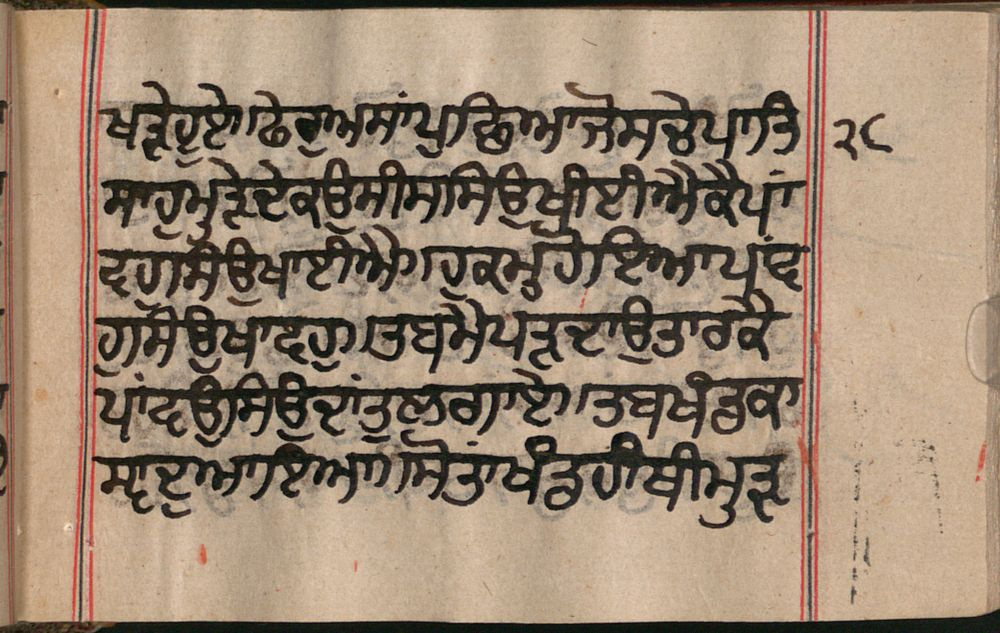 ਖੜੇਹੁਏ॥ਫੇਰੁਅਸਾਂਪੁਛਿਆਜੋਸਚੇਪਾਤਿ
ਸਾਹੁਮੁੜੇਦੇਕਉਸੀਸਾਸਿਉਖੀਈਐਕੈਪਾਂ
ਦਹੁਸਿਉਖਾਈਐ।ਹੁਕਮੁਹੋਇਆਪਾਂਦ
ਹੁਸਿਉਖਾਦਹੁ।ਤਬਮੈਪੜਦਾਉਤਾਰਕੈ
ਪਾਂਦਉਸਿਉਦਾਂਤੁਲਗਾਏ॥ਤਬਖੰਡਕਾ
ਸ੍ਵਾਦੁਆਇਆ॥ਸੋਤਾਂਖੰਡਹੀਥੀਮੁੜ
੨੮